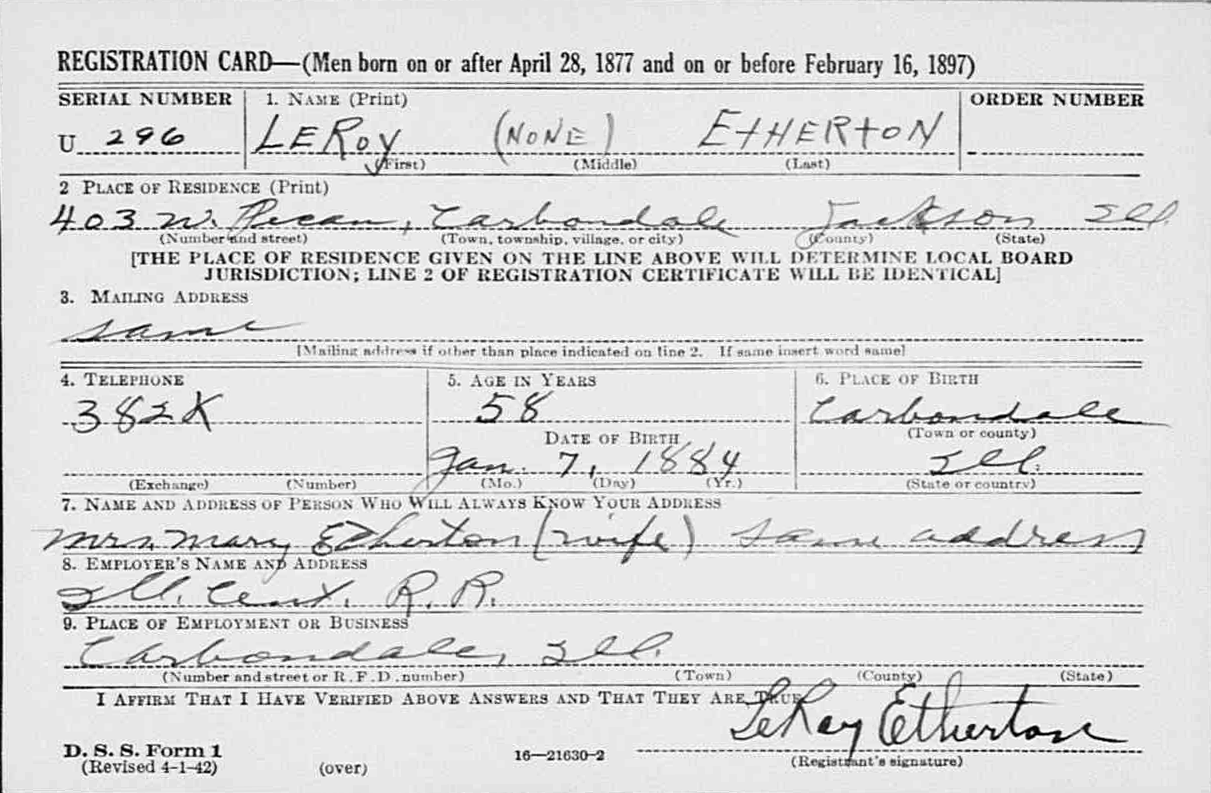 REGISTRATION CARD—(Men born on or after April 28, 1877 and on or before February 16, 1897)
SERIAL NUMBER 1. NAME (Print) ORDER NUMBER
U 296 LEROY (NONE) ETHERTON
(First) (Middle) (Last)
2 PLACE OF RESIDENCE (Print)
403 W. Pecan, Carbondale Jackson Ill.
(Number and street) (Town, township, village, or city) (County) (State)
[THE PLACE OF RESIDENCE GIVEN ON THE LINE ABOVE WILL DETERMINE LOCAL BOARD
JURISDICTION; LINE 2 OF REGISTRATION CERTIFICATE WILL BE IDENTICAL]
3. MAILING ADDRESS
same
[Mailing address if other than place indicated on line 2. If same insert word same]
4. TELEPHONE 5. AGE IN YEARS 6. PLACE OF BIRTH
382X 58 Carbondale
DATE OF BIRTH (Town or county)
Jan. 7, 1884 Ill.
(Exchange) (Number) (Mo.) (Day) (Yr.) (State or country)
7. NAME AND ADDRESS OF PERSON WHO WILL ALWAYS KNOW YOUR ADDRESS
Mrs. Mary Etherton (wife) same address
8. EMPLOYER'S NAME AND ADDRESS
Ill. Cent. R. R.
9. PLACE OF EMPLOYMENT OR BUSINESS
Carbondale, Ill.
(Number and street or R. F. D. number) (Town) (County) (State)
I AFFIRM THAT I HAVE VERIFIED ABOVE ANSWERS AND THAT THEY ARE TRUE
LeRoy Etherton
D. S. S. Form 1
(Revised 4-1-42) (over) 16—21630-2 (Registrant's signature)